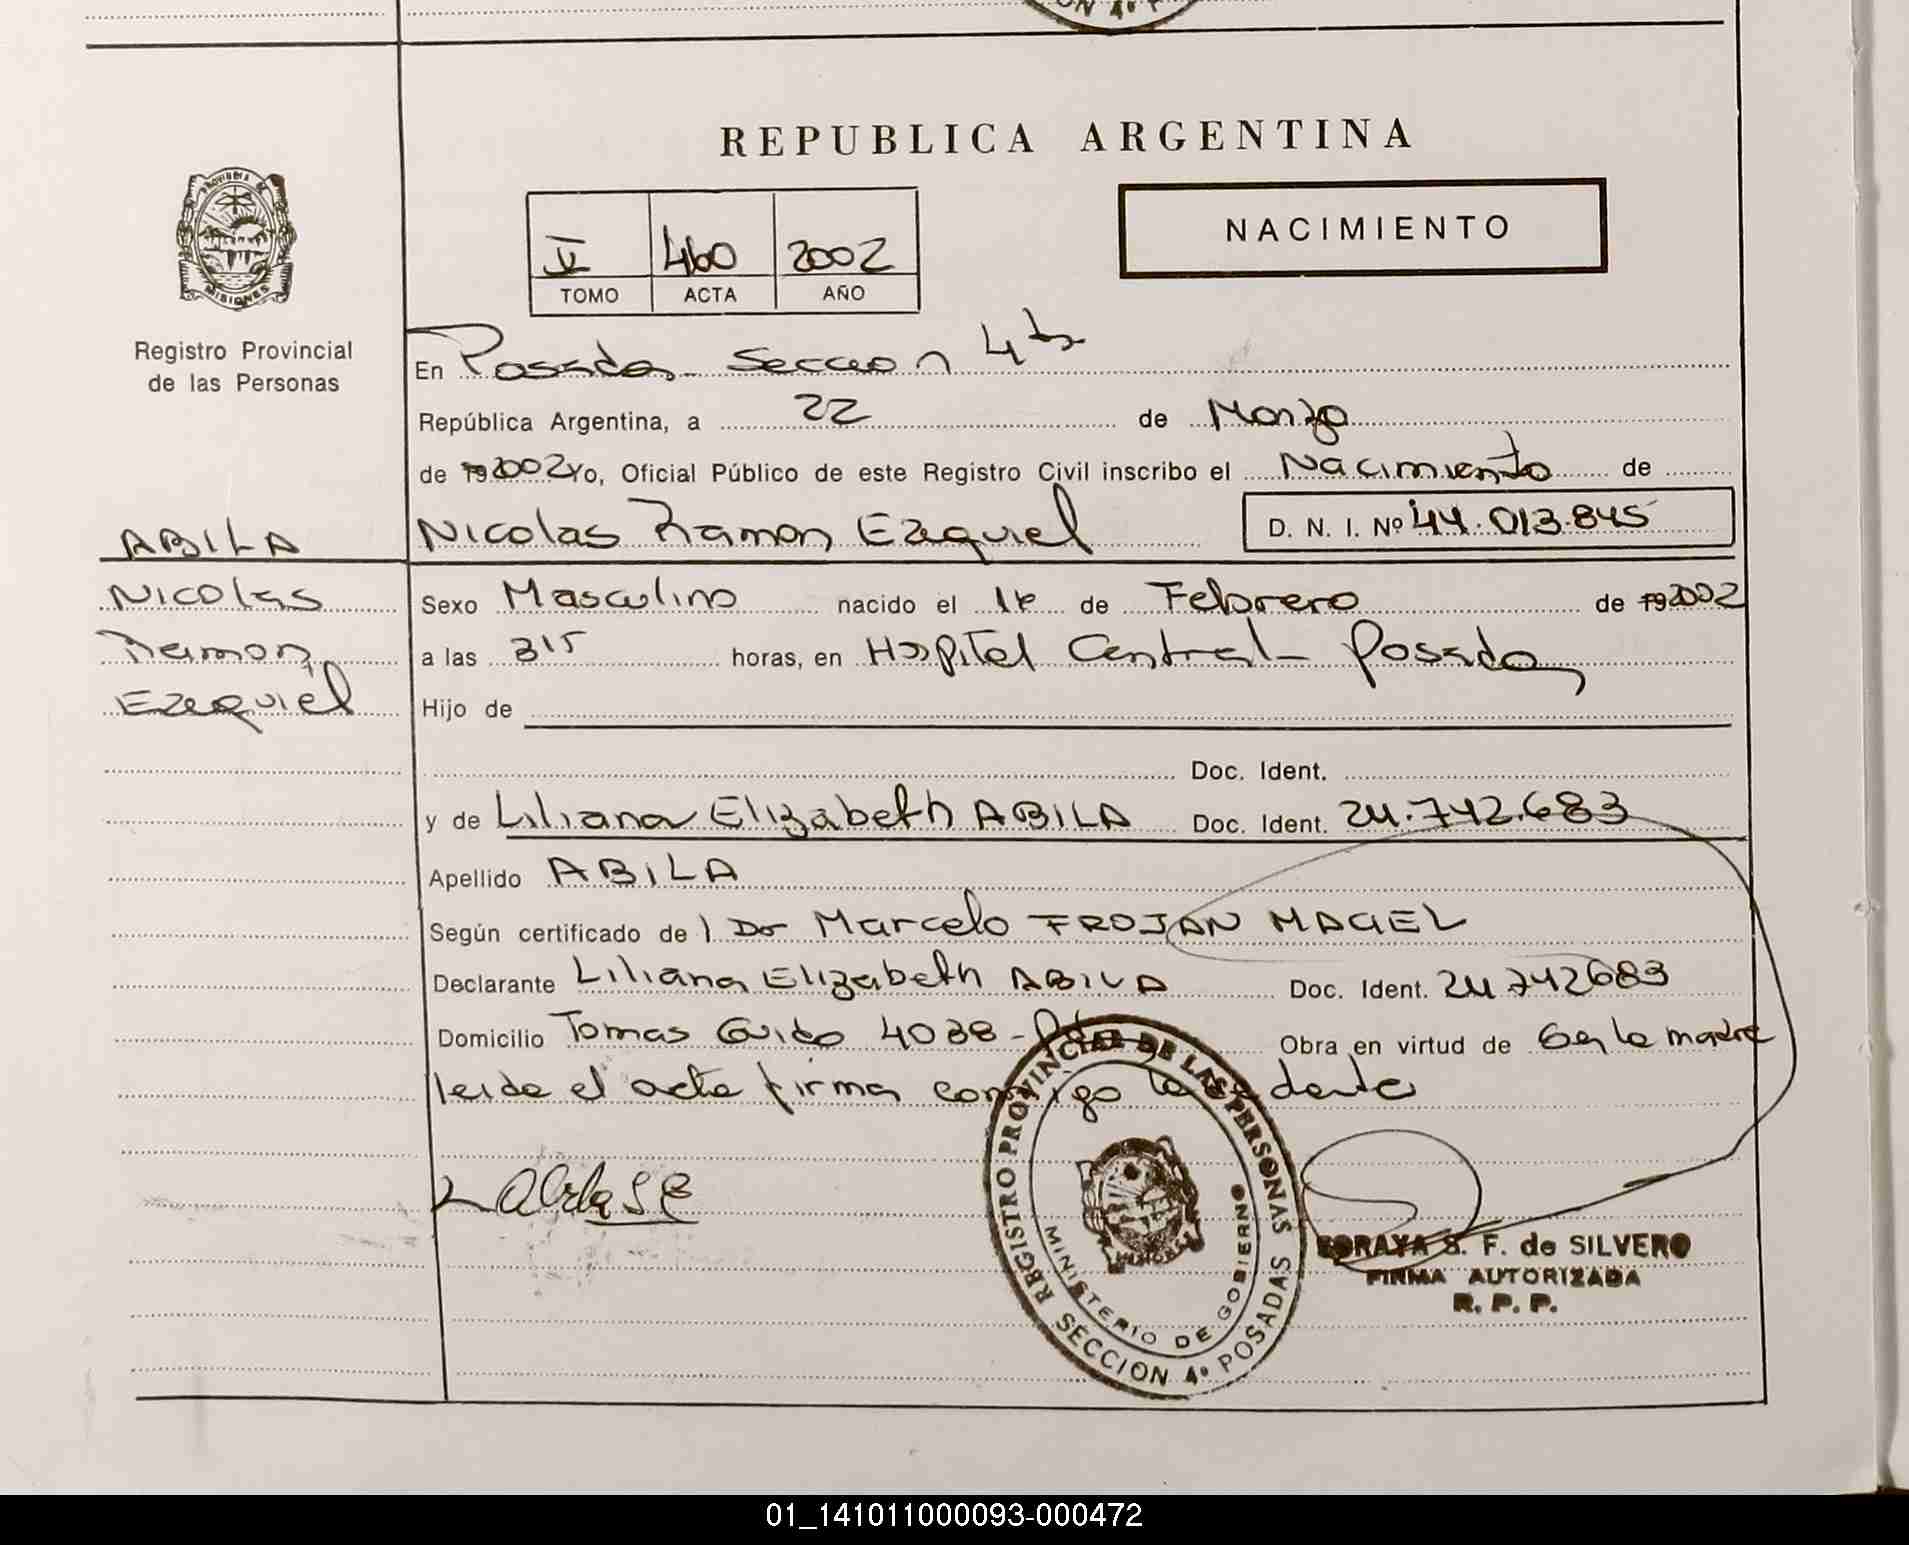 REPUBLICA ARGENTINA
PROVINCIA DE
MISIONES
Registro Provincial
de las Personas
V 460 2002
TOMO ACTA AÑO
NACIMIENTO
En Posadas Seccion 4ta
República Argentina, a 22 de Marzo
de 192002 Yo, Oficial Público de este Registro Civil inscribo el Nacimiento de
Nicolas Ramon Ezequiel D. N. I. Nº 44.013.845
ABILA
Nicolas
Ramon
Ezequiel
Sexo Masculino nacido el de Febrero de 192002
a las 315 horas, en Hospital Central Posadas
Hijo de
Doc. Ident.
y de Liliana Elizabeth ABILA Doc. Ident. 24.742.683
Apellido ABILA
Según certificado de l Dr Marcelo FROJAN MAGEL
Declarante Liliana Elizabeth ABILA Doc. Ident. 24742683
Domicilio Tomas Guido 4038 - Obra en virtud de Ser la madre
leida el acta firma conmigo la
REGISTRO PROVINCIAL DE LAS PERSONAS
MINISTERIO DE GOBIERNO
SECCION 4º POSADAS
SORAYA S. F. de SILVERO
FIRMA AUTORIZADA
R. P. P.
01_141011000093-000472